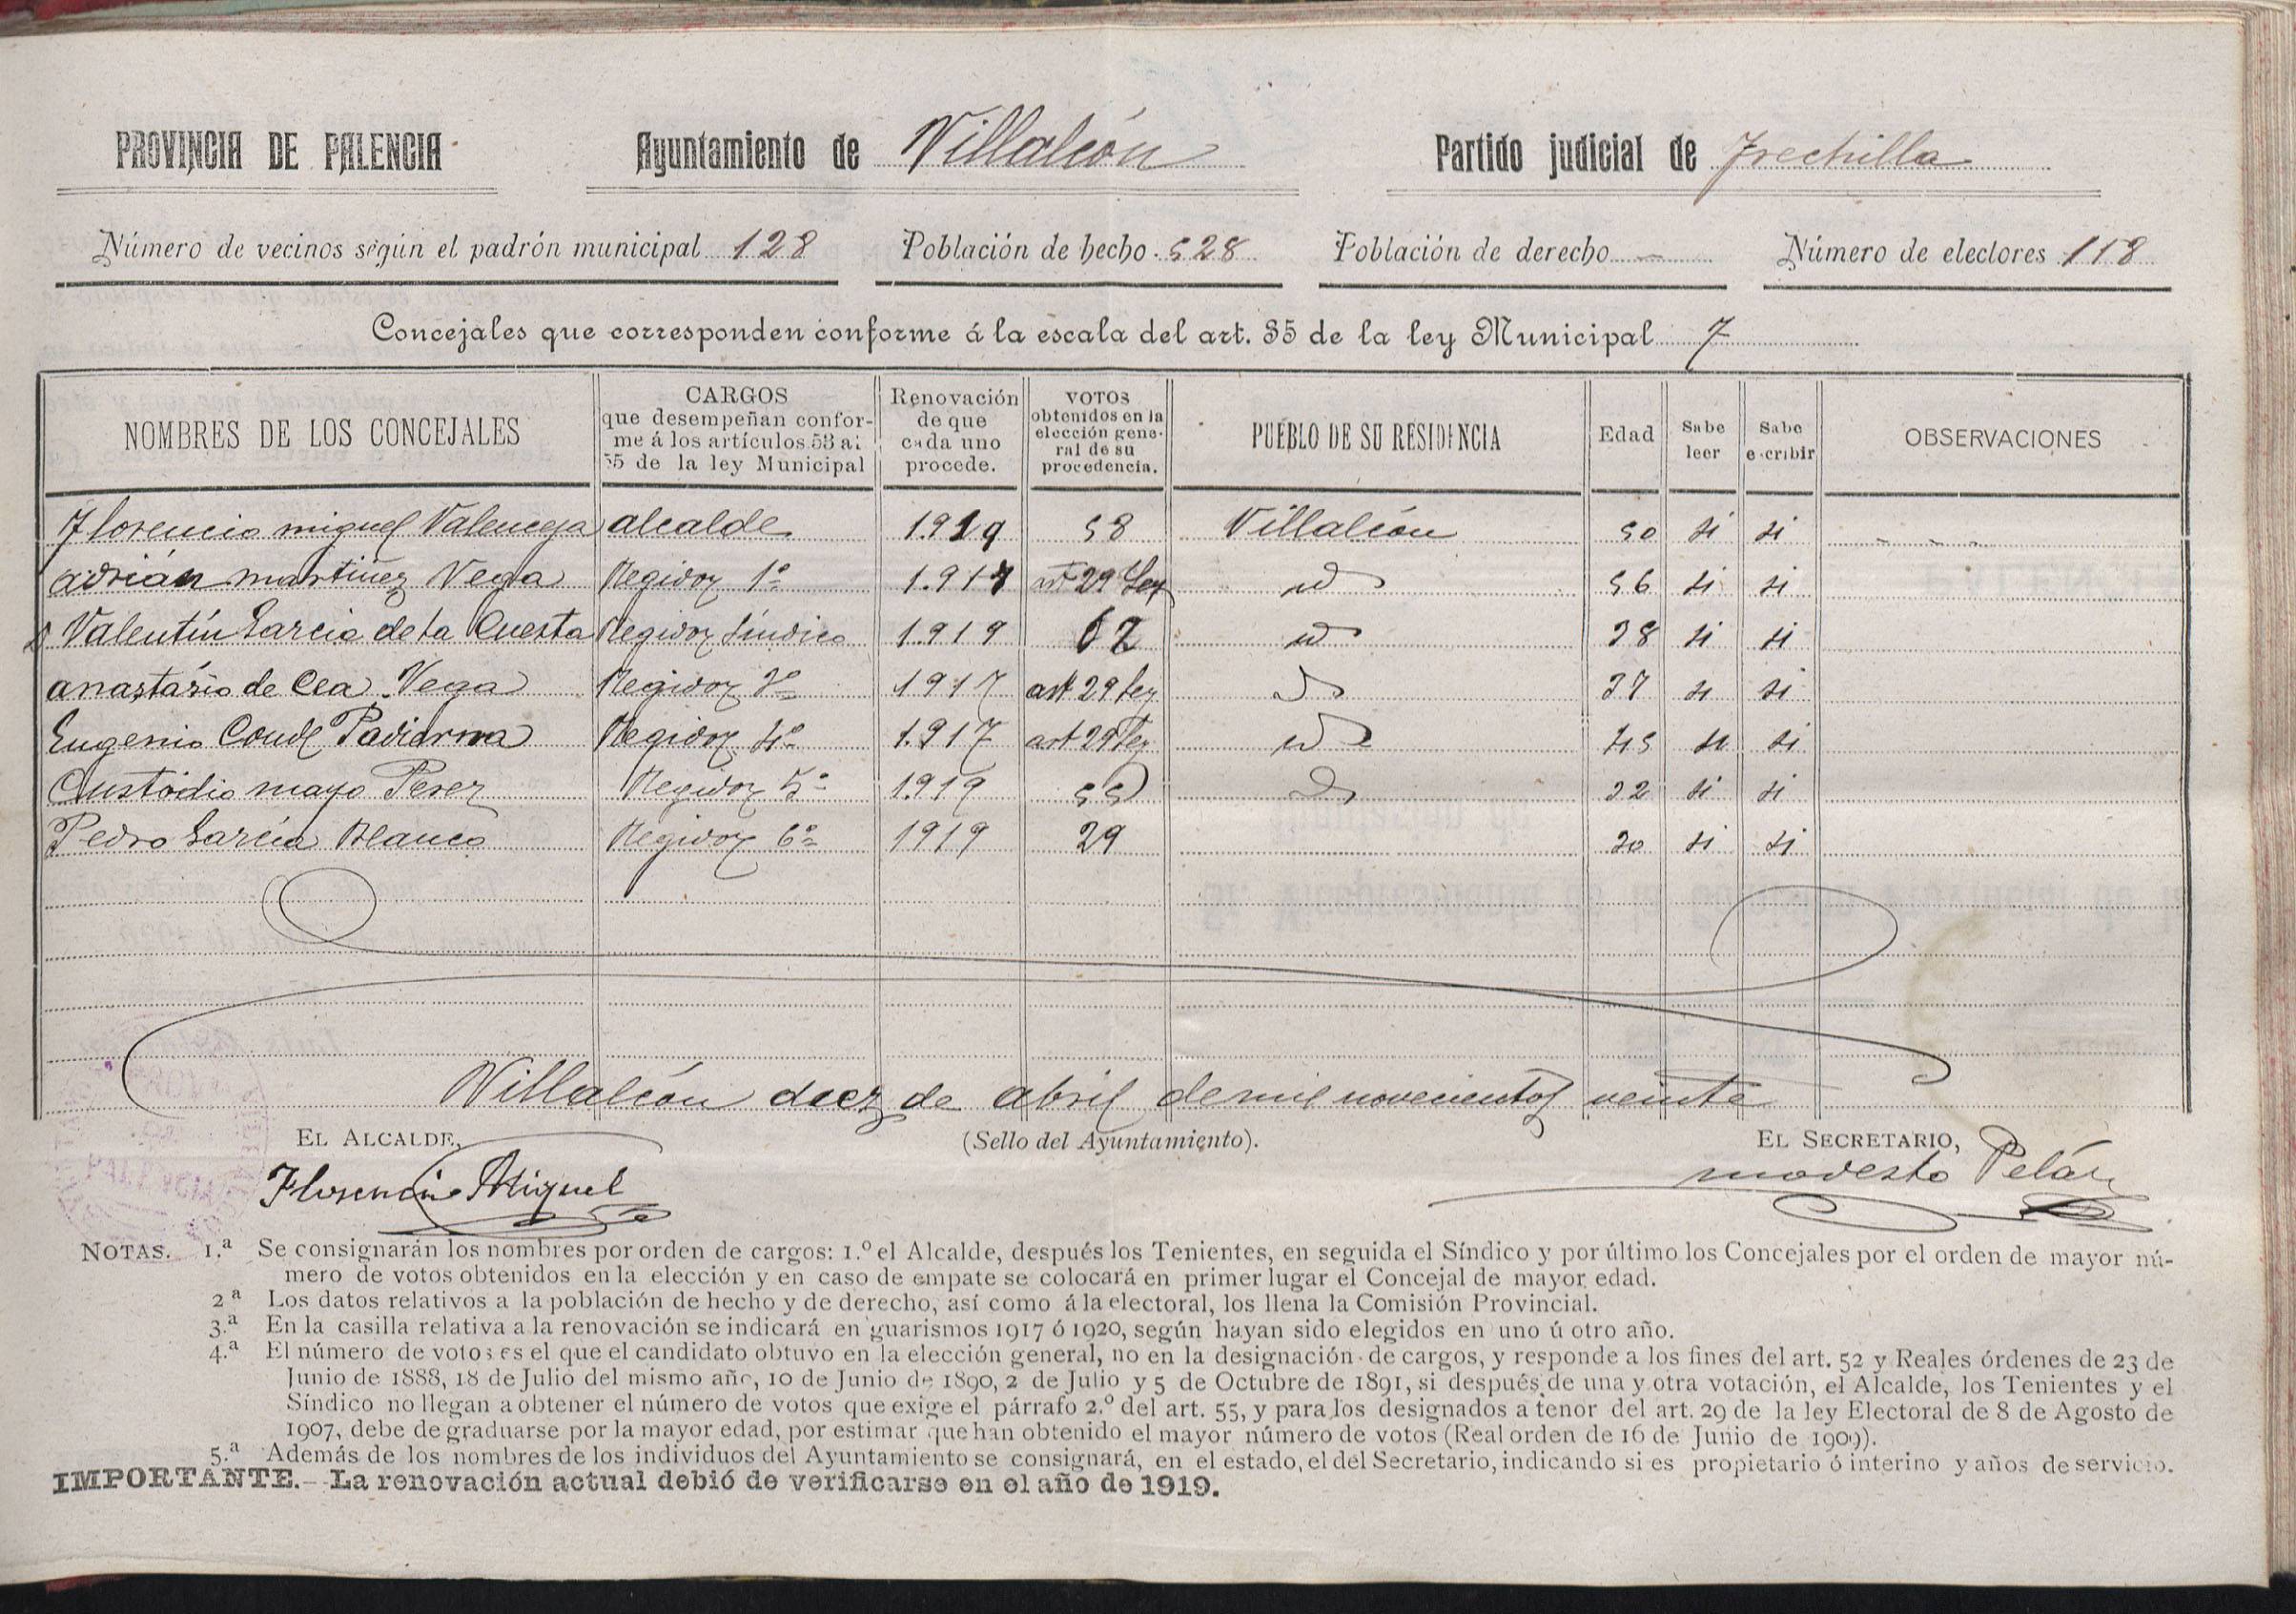 PROVINCIA DE PALENCIA Ayuntamiento de Villalcón Partido judicial de Frechilla
Número de vecinos según el padrón municipal 128 Población de hecho 528 Población de derecho — Número de electores 118
Concejales que corresponden conforme á la escala del art. 35 de la ley Municipal 7
NOMBRES DE LOS CONCEJALES
CARGOS
que desempeñan confor-
me á los artículos 53 al
55 de la ley Municipal
Renovación
de que
cada uno
procede.
VOTOS
obtenidos en la
elección gene-
ral de su
procedencia.
PUEBLO DE SU RESIDENCIA
Edad
Sabe
leer
Sabe
escribir
OBSERVACIONES
Florencio miguel Valenceja alcalde 1.919 58 Villalcón 50 si si
adrián martinez Vega Regidor 1º 1.917 art 29 Ley id 56 si si
Valentín Garcia de la Cuesta Regidor Síndico 1.919 62 id 38 si si
anastásio de Cea Vega Regidor 3º 1917 art 29 Ley id 37 si si
Eugenio Conde Padierna Regidor 4º 1.917 art 29 Ley id 45 si si
Custódio mayo Perez Regidor 5º 1.919 55 id 32 si si
Pedro García Blanco Regidor 6º 1919 29 30 si si
Villalcón diez de abril de mil novecientos veinte
EL ALCALDE, (Sello del Ayuntamiento). EL SECRETARIO,
Florencio Miguel modesto Peláz
NOTAS. 1.ª Se consignarán los nombres por orden de cargos: 1.º el Alcalde, después los Tenientes, en seguida el Síndico y por último los Concejales por el orden de mayor nú-
mero de votos obtenidos en la elección y en caso de empate se colocará en primer lugar el Concejal de mayor edad.
2ª Los datos relativos a la población de hecho y de derecho, así como á la electoral, los llena la Comisión Provincial.
3.ª En la casilla relativa a la renovación se indicará en guarismos 1917 ó 1920, según hayan sido elegidos en uno ú otro año.
4.ª El número de votos es el que el candidato obtuvo en la elección general, no en la designación de cargos, y responde a los fines del art. 52 y Reales órdenes de 23 de
Junio de 1888, 18 de Julio del mismo año, 10 de Junio de 1890, 2 de Julio y 5 de Octubre de 1891, si después de una y otra votación, el Alcalde, los Tenientes y el
Síndico no llegan a obtener el número de votos que exige el párrafo 2.º del art. 55, y para los designados a tenor del art. 29 de la ley Electoral de 8 de Agosto de
1907, debe de graduarse por la mayor edad, por estimar que han obtenido el mayor número de votos (Real orden de 16 de Junio de 1909).
5.ª Además de los nombres de los individuos del Ayuntamiento se consignará, en el estado, el del Secretario, indicando si es propietario ó interino y años de servicio.
IMPORTANTE.—La renovación actual debió de verificarse en el año de 1919.